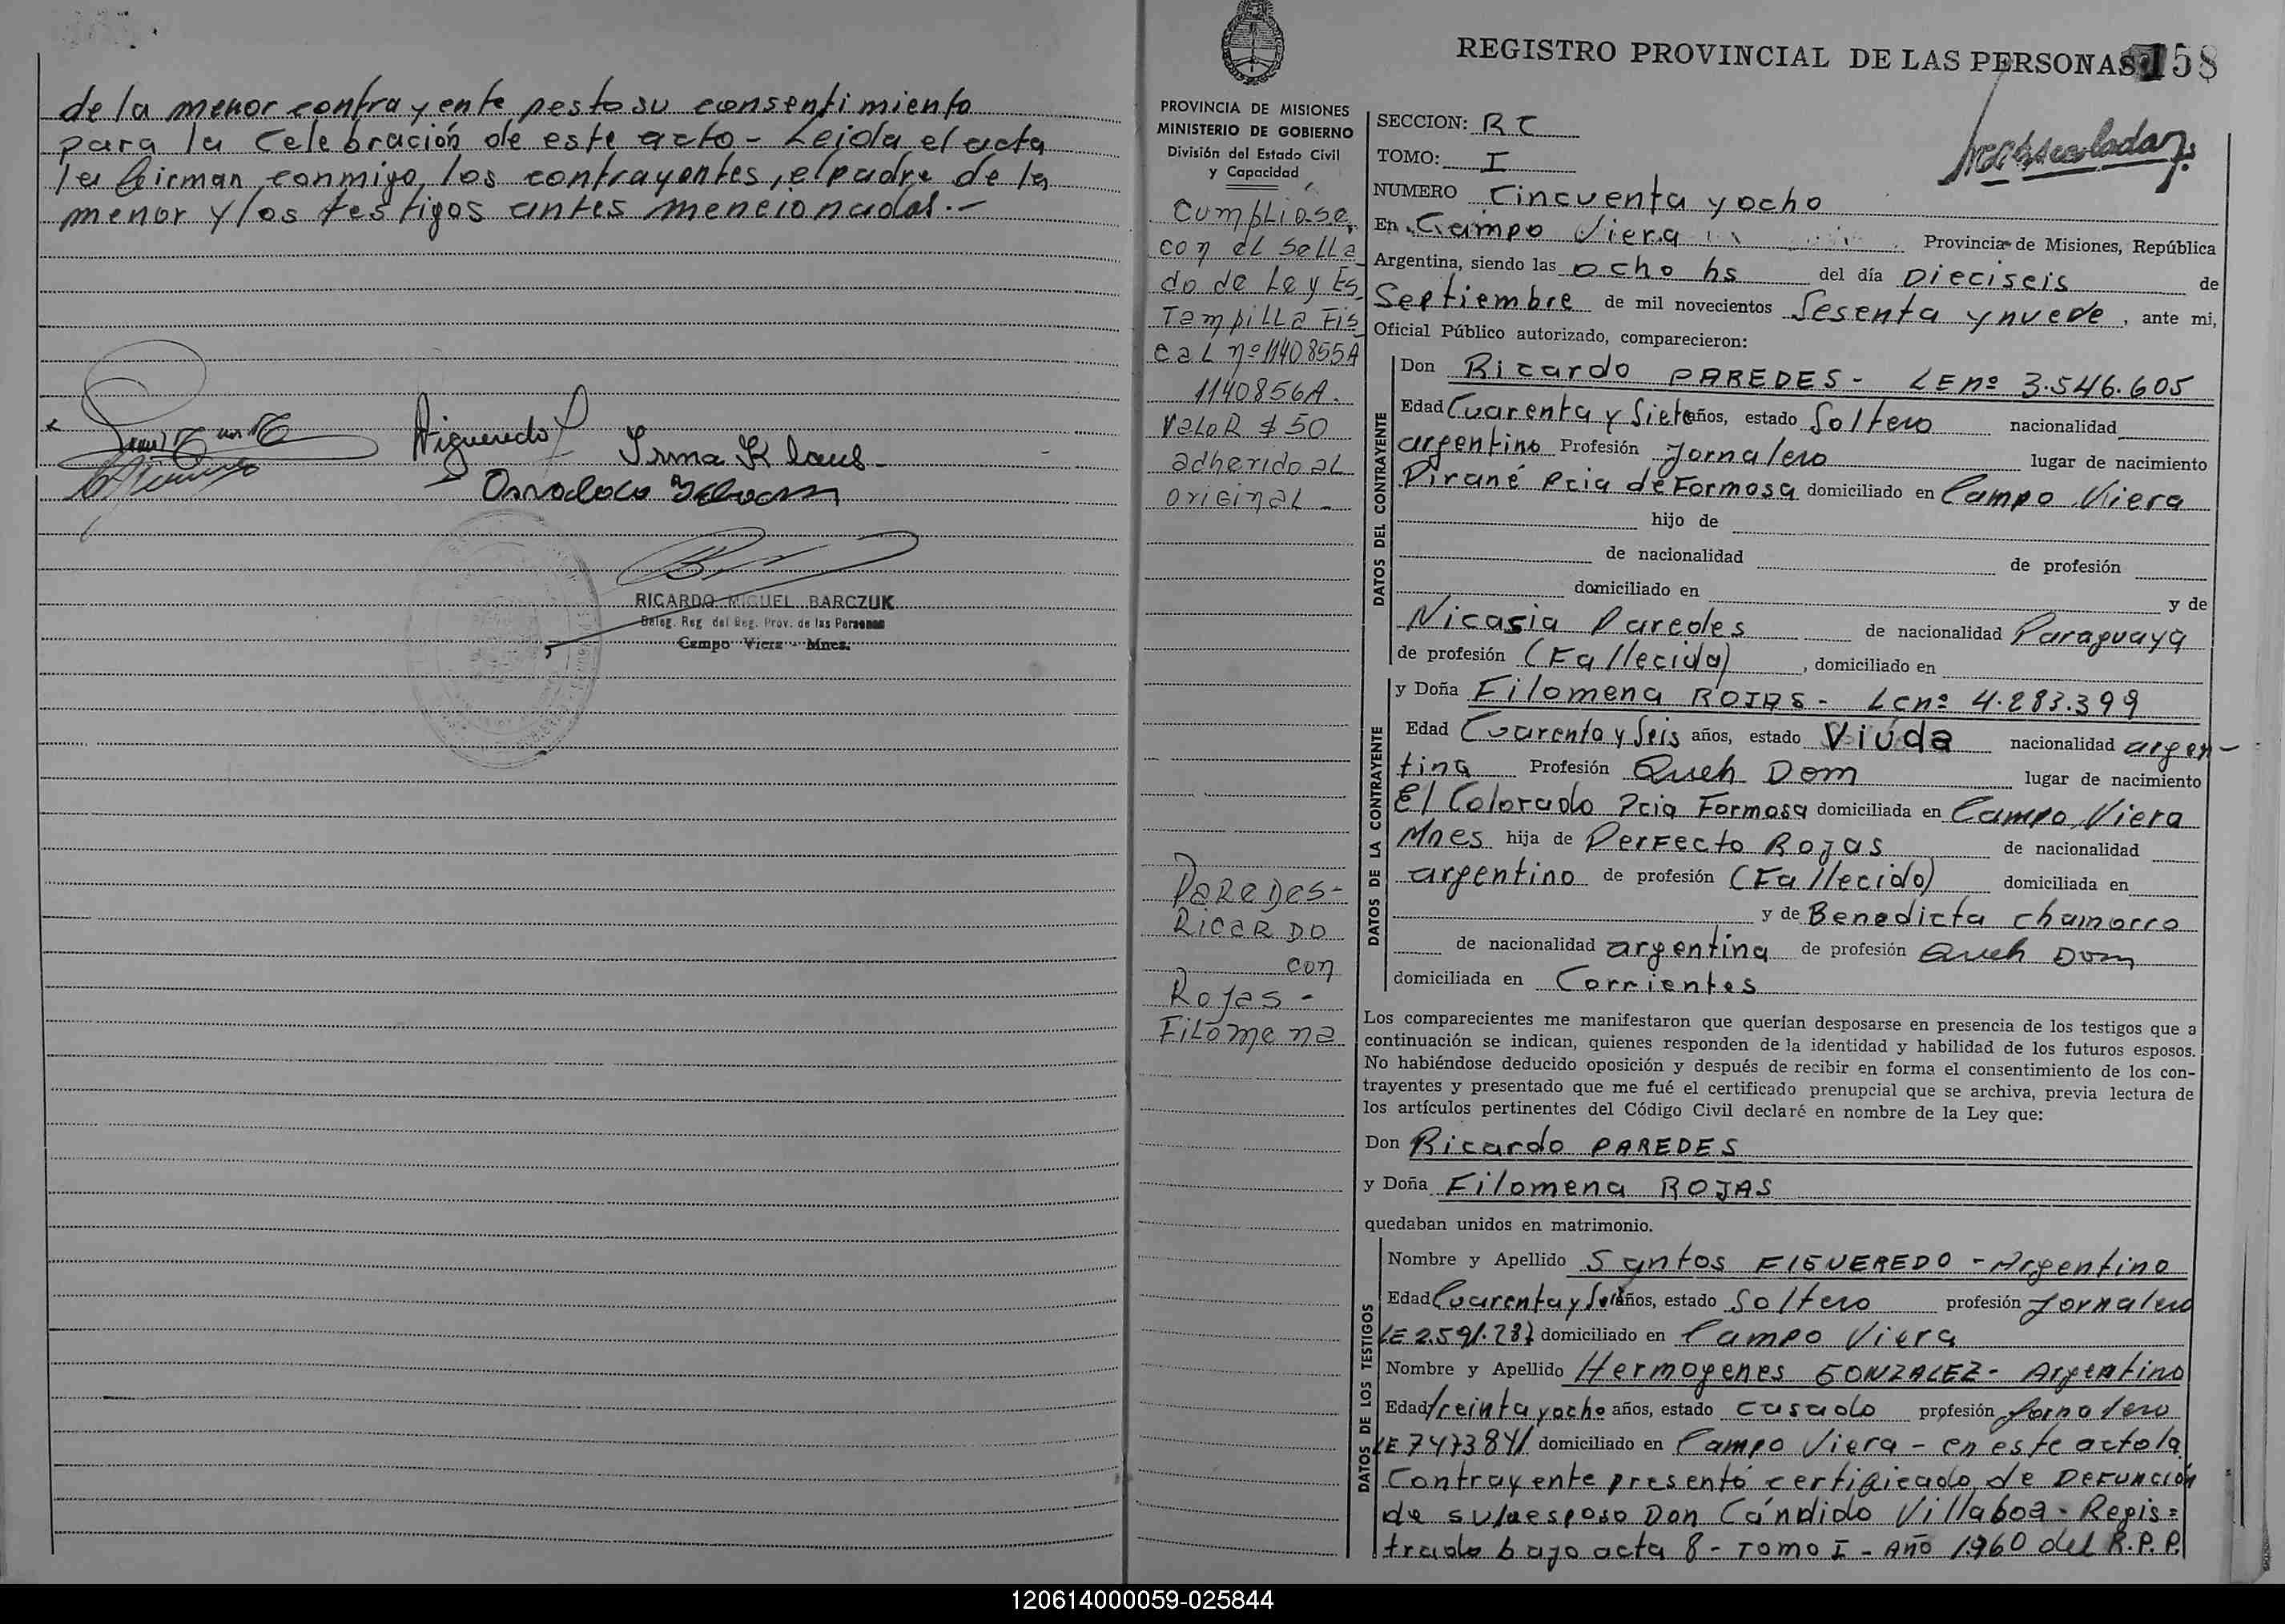 de la menor contrayente pesto su consentimiento
para la celebración de este acto - Leida el acta
la firman conmigo, los contrayentes, el padre de la
menor y los testigos antes mencionados.-
Figueredo
Irma Klaus
Osvaldo
RICARDO MIGUEL BARCZUK
Deleg. Reg. del Reg. Prov. de las Personas
Campo Viera - Mnes.
REGISTRO PROVINCIAL DE LAS PERSONAS 158
PROVINCIA DE MISIONES
MINISTERIO DE GOBIERNO
División del Estado Civil
y Capacidad
Cumplióse
con el sella
do de Ley Es
Tampilla Fis
cal nº 1140855A
1140856A.
Valor $ 50
adherido al
original -
Paredes-
Ricardo
con
Rojas -
Filomena
SECCION: RC
TOMO: I
NUMERO Cincuenta y ocho
En Campo Viera Provincia de Misiones, República
Argentina, siendo las ocho hs del día Dieciseis de
Septiembre de mil novecientos Sesenta y nueve, ante mi,
Oficial Público autorizado, comparecieron:
DATOS DEL CONTRAYENTE
Don Ricardo PAREDES - LE nº 3.546.605
Edad Cuarenta y Siete años, estado Soltero nacionalidad
argentino Profesión Jornalero lugar de nacimiento
Pirané Pcia de Formosa domiciliado en Campo Viera
hijo de
de nacionalidad de profesión
domiciliado en y de
Nicasia Paredes de nacionalidad Paraguaya
de profesión (Fallecida), domiciliado en
DATOS DE LA CONTRAYENTE
y Doña Filomena ROJAS - LC nº 4.283.399
Edad Cuarenta y Seis años, estado Viúda nacionalidad argen-
tina Profesión Queh Dom lugar de nacimiento
El Colorado Pcia Formosa domiciliada en Campo Viera
Mnes hija de Perfecto Rojas de nacionalidad
argentino de profesión (Fallecido) domiciliada en
y de Benedicta Chamorro
de nacionalidad argentina de profesión Queh Dom
domiciliada en Corrientes
Los comparecientes me manifestaron que querían desposarse en presencia de los testigos que a
continuación se indican, quienes responden de la identidad y habilidad de los futuros esposos.
No habiéndose deducido oposición y después de recibir en forma el consentimiento de los con-
trayentes y presentado que me fué el certificado prenupcial que se archiva, previa lectura de
los artículos pertinentes del Código Civil declaré en nombre de la Ley que:
Don Ricardo PAREDES
y Doña Filomena ROJAS
quedaban unidos en matrimonio.
DATOS DE LOS TESTIGOS
Nombre y Apellido Santos FIGUEREDO - Argentino
Edad Cuarenta y Seis años, estado Soltero profesión Jornalero
LE 2.591.287 domiciliado en Campo Viera
Nombre y Apellido Hermogenes GONZALEZ - Argentino
Edad treinta y ocho años, estado casado profesión Jornalero
LE 7473841 domiciliado en Campo Viera - en este acto la
Contrayente presentó certificado de DeFunción
de su esposo Don Cándido Villaboa - Regis=
trado bajo acta 8 - Tomo I - Año 1960 del R.P.P.
120614000059-025844